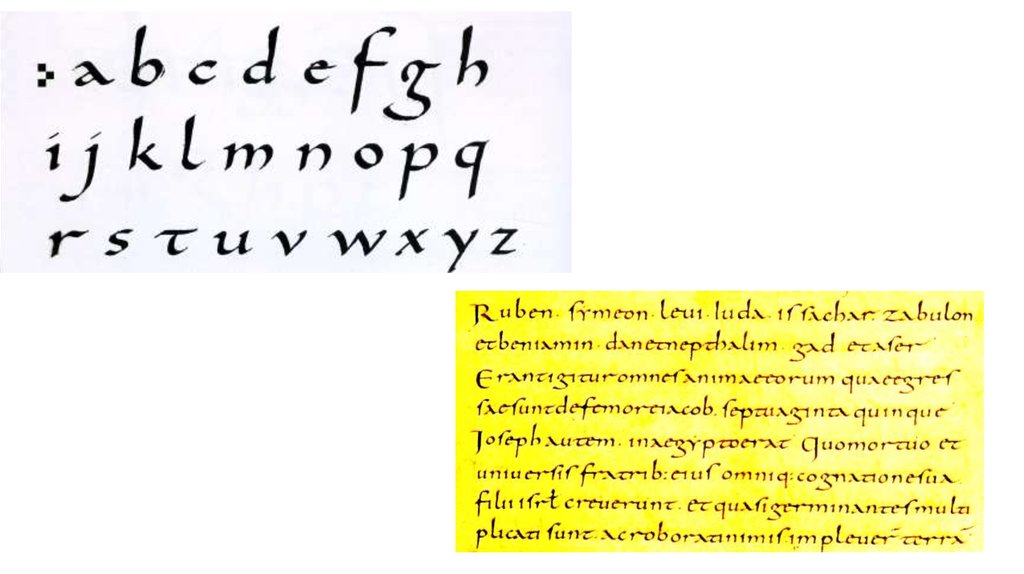 a b c d e f g h
i j k l m n o p q
r s t u v w x y z
Ruben· symeon· leui· iuda· is sachar· zabulon
et beniamin· dan et nepthalim· gad et aser
Erant igitur omnes animae eorum quae egres
sae sunt de femore iacob· septuaginta quinque
Ioseph autem· in aegypto erat Quo mortuo et
uniuersis fratrib: eius omniq: cognatione sua·
filii isrł creuerunt· et quasi germinantes multi
plicati sunt· ac roborati nimis· impleuer̄ terrā